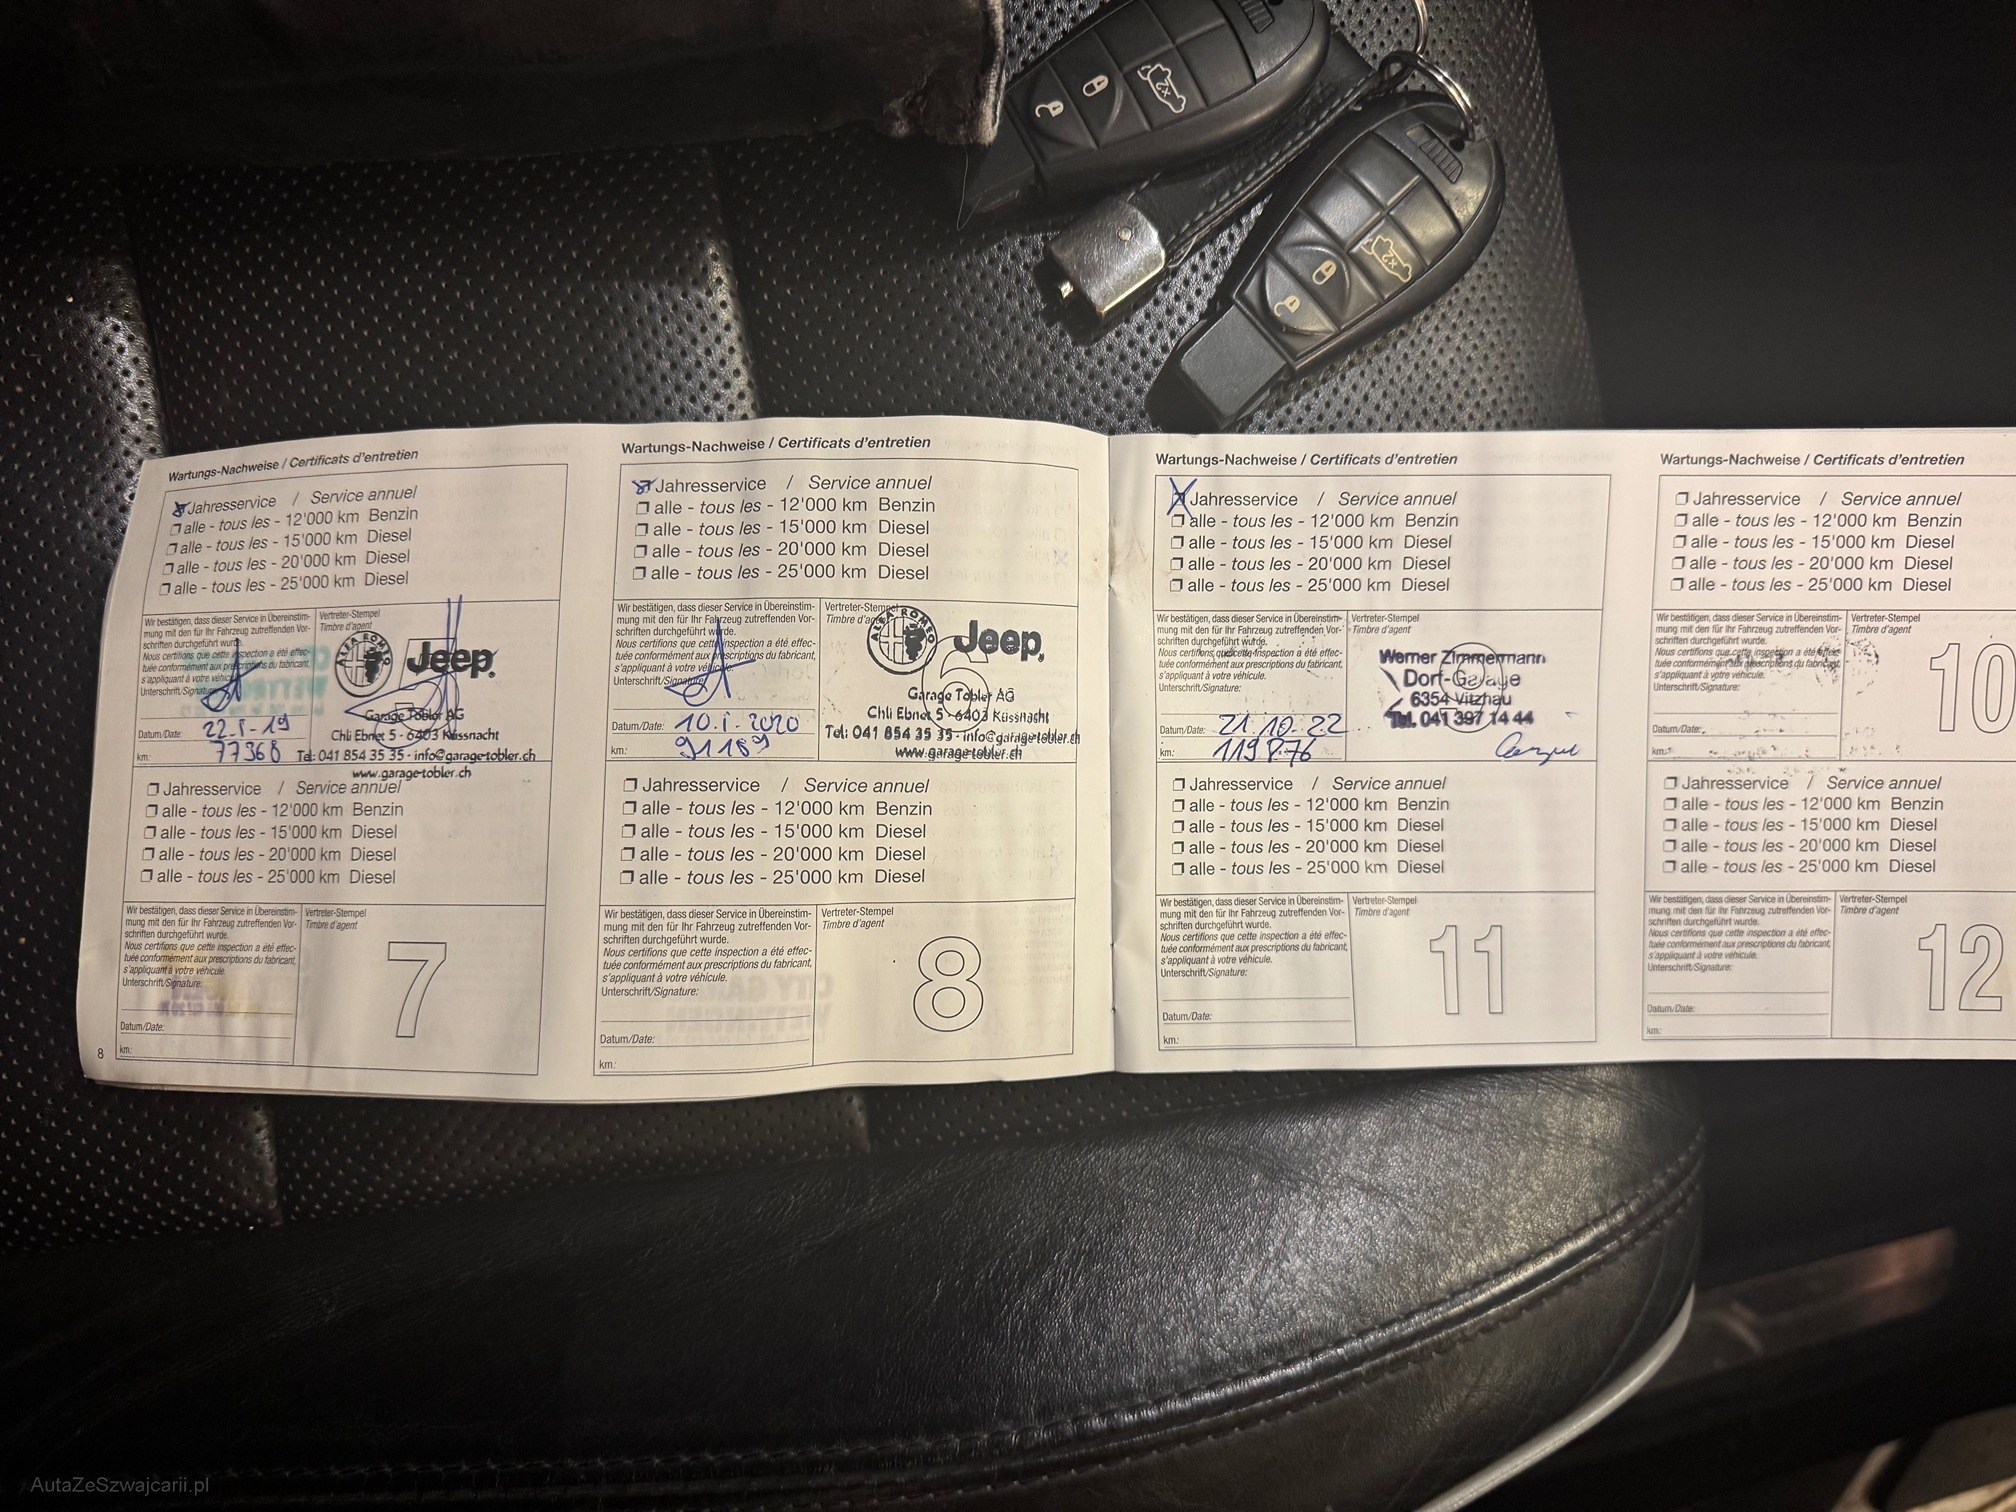 Wartungs-Nachweise / Certificats d'entretien
Jahresservice / Service annuel
alle - tous les - 12'000 km Benzin
alle - tous les - 15'000 km Diesel
alle - tous les - 20'000 km Diesel
alle - tous les - 25'000 km Diesel
Wir bestätigen, dass dieser Service in Übereinstim-
mung mit den für Ihr Fahrzeug zutreffenden Vor-
schriften durchgeführt wurde.
Nous certifions que cette inspection a été effec-
tuée conformément aux prescriptions du fabricant,
s'appliquant à votre véhicule.
Unterschrift/Signature
Datum/Date: 22.I.19
km: 77368
Vertreter-Stempel
Timbre d'agent
ALFA ROMEO
Jeep
Garage Tobler AG
Chli Ebnet 5 - 6403 Küssnacht
Tel: 041 854 35 35 - info@garage-tobler.ch
www.garage-tobler.ch
Jahresservice / Service annuel
alle - tous les - 12'000 km Benzin
alle - tous les - 15'000 km Diesel
alle - tous les - 20'000 km Diesel
alle - tous les - 25'000 km Diesel
Wir bestätigen, dass dieser Service in Übereinstim-
mung mit den für Ihr Fahrzeug zutreffenden Vor-
schriften durchgeführt wurde.
Nous certifions que cette inspection a été effec-
tuée conformément aux prescriptions du fabricant,
s'appliquant à votre véhicule.
Unterschrift/Signature:
Datum/Date:
km:
Vertreter-Stempel
Timbre d'agent
7
8
Wartungs-Nachweise / Certificats d'entretien
Jahresservice / Service annuel
alle - tous les - 12'000 km Benzin
alle - tous les - 15'000 km Diesel
alle - tous les - 20'000 km Diesel
alle - tous les - 25'000 km Diesel
Wir bestätigen, dass dieser Service in Übereinstim-
mung mit den für Ihr Fahrzeug zutreffenden Vor-
schriften durchgeführt wurde.
Nous certifions que cette inspection a été effec-
tuée conformément aux prescriptions du fabricant,
s'appliquant à votre véhicule.
Unterschrift/Signature:
Datum/Date: 10.I.2020
km: 91189
Vertreter-Stempel
Timbre d'agent
6
ALFA ROMEO
Jeep
Garage Tobler AG
Chli Ebnet 5 - 6403 Küssnacht
Tel: 041 854 35 35 - info@garage-tobler.ch
www.garage-tobler.ch
Jahresservice / Service annuel
alle - tous les - 12'000 km Benzin
alle - tous les - 15'000 km Diesel
alle - tous les - 20'000 km Diesel
alle - tous les - 25'000 km Diesel
Wir bestätigen, dass dieser Service in Übereinstim-
mung mit den für Ihr Fahrzeug zutreffenden Vor-
schriften durchgeführt wurde.
Nous certifions que cette inspection a été effec-
tuée conformément aux prescriptions du fabricant,
s'appliquant à votre véhicule.
Unterschrift/Signature:
Datum/Date:
km:
Vertreter-Stempel
Timbre d'agent
8
Wartungs-Nachweise / Certificats d'entretien
Jahresservice / Service annuel
alle - tous les - 12'000 km Benzin
alle - tous les - 15'000 km Diesel
alle - tous les - 20'000 km Diesel
alle - tous les - 25'000 km Diesel
Wir bestätigen, dass dieser Service in Übereinstim-
mung mit den für Ihr Fahrzeug zutreffenden Vor-
schriften durchgeführt wurde.
Nous certifions que cette inspection a été effec-
tuée conformément aux prescriptions du fabricant,
s'appliquant à votre véhicule.
Unterschrift/Signature:
Datum/Date: 21.10.22
km: 119876
Vertreter-Stempel
Timbre d'agent
Werner Zimmermann
Dorf-Garage
6354 Vitznau
Tel. 041 397 14 44
Jahresservice / Service annuel
alle - tous les - 12'000 km Benzin
alle - tous les - 15'000 km Diesel
alle - tous les - 20'000 km Diesel
alle - tous les - 25'000 km Diesel
Wir bestätigen, dass dieser Service in Übereinstim-
mung mit den für Ihr Fahrzeug zutreffenden Vor-
schriften durchgeführt wurde.
Nous certifions que cette inspection a été effec-
tuée conformément aux prescriptions du fabricant,
s'appliquant à votre véhicule.
Unterschrift/Signature:
Datum/Date:
km:
Vertreter-Stempel
Timbre d'agent
11
Wartungs-Nachweise / Certificats d'entretien
Jahresservice / Service annuel
alle - tous les - 12'000 km Benzin
alle - tous les - 15'000 km Diesel
alle - tous les - 20'000 km Diesel
alle - tous les - 25'000 km Diesel
Wir bestätigen, dass dieser Service in Übereinstim-
mung mit den für Ihr Fahrzeug zutreffenden Vor-
schriften durchgeführt wurde.
Nous certifions que cette inspection a été effec-
tuée conformément aux prescriptions du fabricant,
s'appliquant à votre véhicule.
Unterschrift/Signature:
Datum/Date:
km:
Vertreter-Stempel
Timbre d'agent
10
Jahresservice / Service annuel
alle - tous les - 12'000 km Benzin
alle - tous les - 15'000 km Diesel
alle - tous les - 20'000 km Diesel
alle - tous les - 25'000 km Diesel
Wir bestätigen, dass dieser Service in Übereinstim-
mung mit den für Ihr Fahrzeug zutreffenden Vor-
schriften durchgeführt wurde.
Nous certifions que cette inspection a été effec-
tuée conformément aux prescriptions du fabricant,
s'appliquant à votre véhicule.
Unterschrift/Signature:
Datum/Date:
km:
Vertreter-Stempel
Timbre d'agent
12
x2
x2
AutaZeSzwajcarii.pl